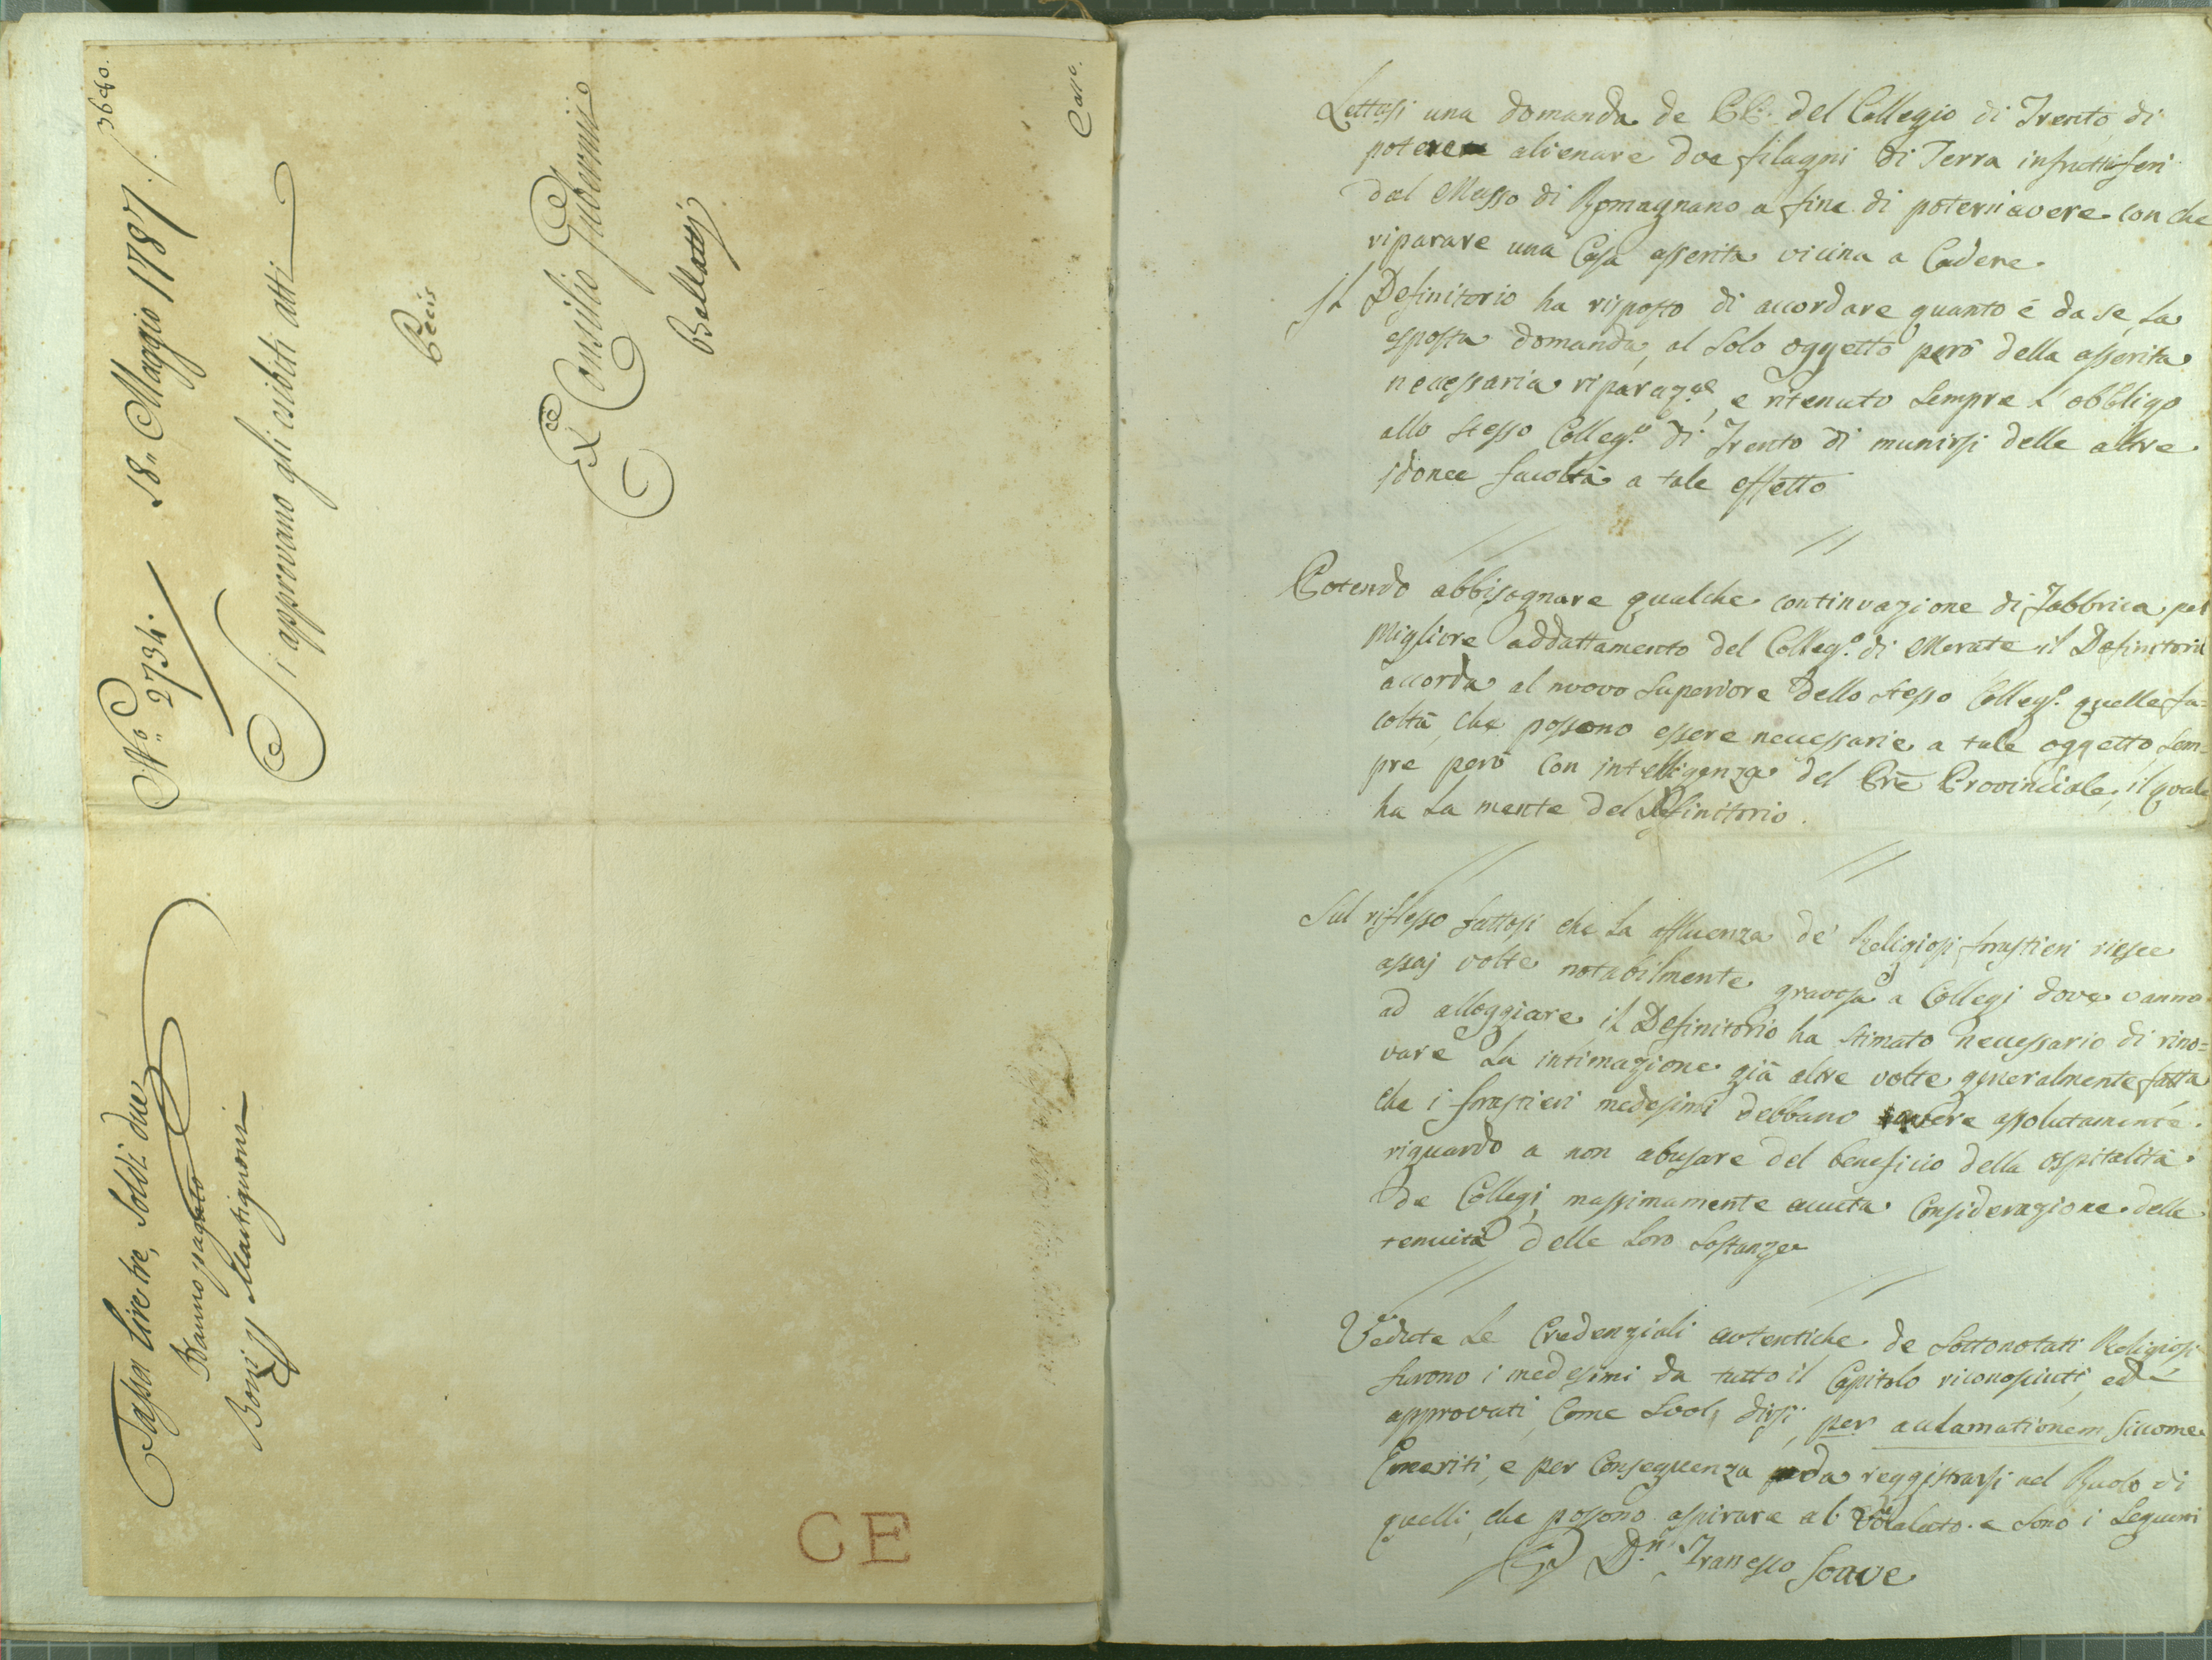 N.o 2734. 18. Maggio 1787. / 3680.
Si approvano gli esibiti atti
Pecis
Ex Consilio Gubernii
Bellatti
Tassa lire tre, Soldi due
Hanno pagato
Bonij Martignoni
CE
Lettasi una domanda de PP. del Collegio di Trento di
potere alienare due filagni di Terra infruttiferi
dal Masso di Romagnano a fine di poterii avere con che
riparare una Casa asserita vicina a Cadere.
Il Definitorio ha risposto di accordare quanto è da se la
esposta domanda, al solo oggetto però della asserita
necessaria riparaz.e, e ritenuto sempre l'obbligo
allo stesso Colleg.o di Trento di munirsi delle altre
idonee facoltà a tale effetto
Potendo abbisognare qualche continuazione di Fabbrica pel
migliore addattamento del Colleg.o di Merate il Definitorio
accorda al nuovo Superiore dello stesso Colleg.o quelle fa=
coltà, che possono essere necessarie a tale oggetto, sem-
pre però con intelligenza del Pre Provinciale, il quale
ha la mente del Definitorio.
Sul riflesso fattosi che la affluenza de' Religiosi forastieri riesce
assai volte notabilmente gravosa a Collegj dove vanno
ad alloggiare, il Definitorio ha stimato necessario di rino=
vare la intimazione già altre volte generalmente fatta
che i forastieri medesimi debbano avere assolutamente
riguardo a non abusare del beneficio della ospitalità
de Collegj massimamente avuta Considerazione della
tenuità delle loro sostanze
Vedute le Credenziali autentiche de sottonotati Religiosi
furono i medesimi da tutto il Capitolo riconosciuti, ed
approvati, come suol dirsi, per acclamationem siccome
Emeriti, e per conseguenza da reggistrarsi nel Ruolo di
quelli, che possono aspirare al Vocalato e sono i seguenti
D.n Francesco Soave